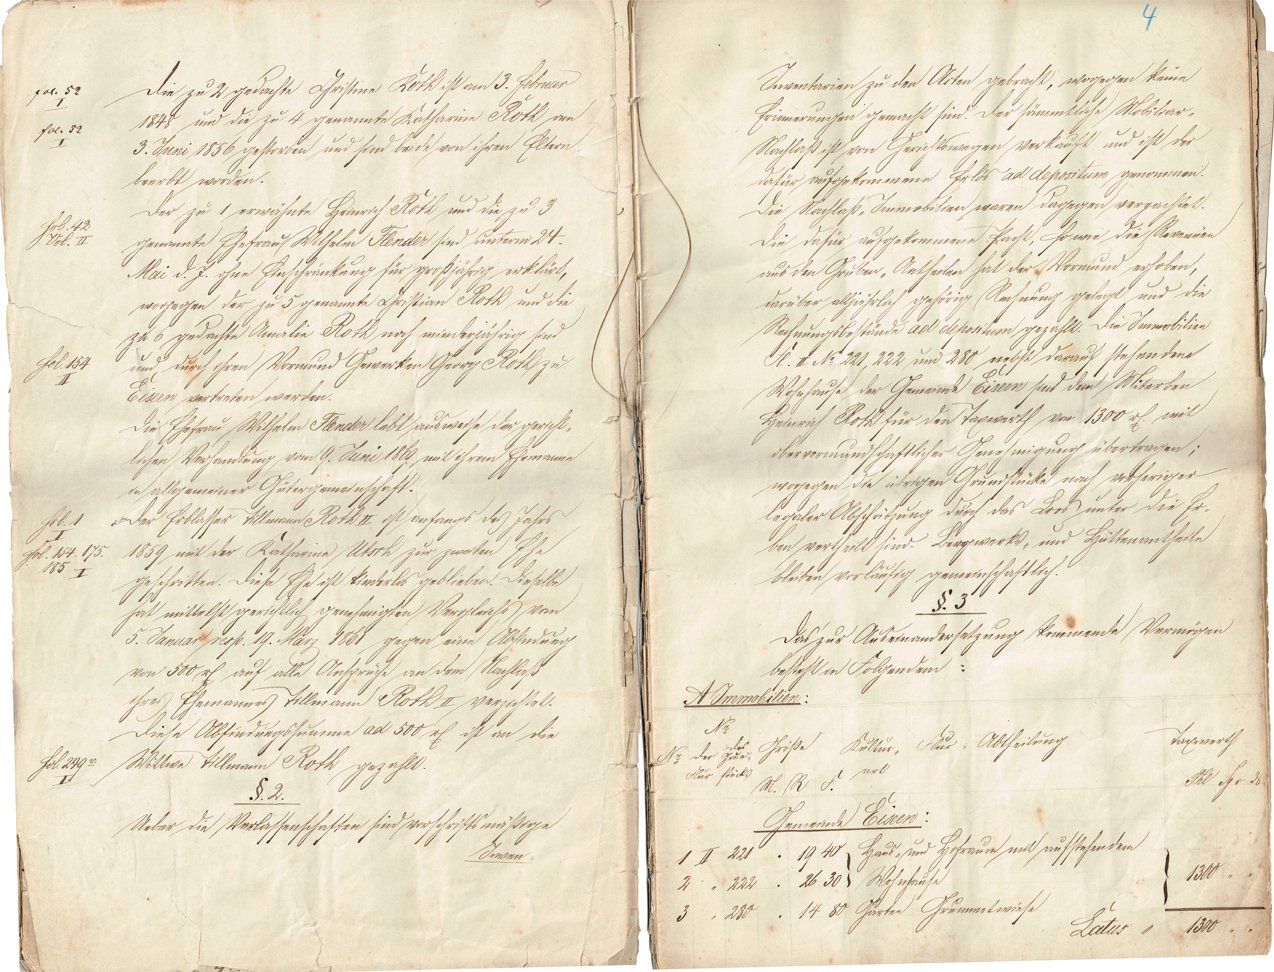 fol. 52
I
fol. 52
I
fol. 42
Vol. II
fol. 154
II
fol. 1
I
fol. 154. 175.
185 I
fol. 249 v.
II
Die zu 2 gedachte Christine Roth ist am 3. Februar
184 und die zu 4 genannte Katharine Roth am
3. Juni 1856 gestorben und sind beide von ihren Eltern
beerbt worden.
Der zu 1 erwähnte Heinrich Roth und die zu 3
genannte Ehefrau Wilhelm Flender sind unterm 24.
Mai d. J. ohne Einschränkung für großjährig erklärt,
wogegen der zu 5 genannte Christian Roth und die
zu 6 gedachte Amalie Roth noch minderjährig sind
und durch ihren Vormund Gewerken Georg Roth zu
Eisern vertreten werden.
Die Ehefrau Wilhelm Flender lebt ausweise der gericht-
lichen Verhandlung vom 9. Juni mit ihrem Ehemanne
in allgemeiner Gütergemeinschaft.
Der Erblasser Tillmann Roth II ist anfangs des Jahrs
1859 mit der Katharine zur zweiten Ehe
geschritten. Diese Ehe ist kinderlos geblieben. Dieselbe
hat mittelst gerichtlich genehmigten Vergleichs vom
5. Januar resp. 19. März 1861 gegen eine Abfindung
von 500 rℓ auf alle Ansprüche an dem Nachlaß
ihres Ehemannes Tillmann Roth II verzichtet.
Diese Abfindungssumme ad 500 rℓ ist an die
Wittwe Tillmann Roth gezahlt.
§. 2.
Ueber die Verlassenschaften sind vorschriftsmäßige
Inven-
4
Inventarien zu den Acten gebracht, wogegen keine
Erinnerungen gemacht sind. Der sämmtliche Mobiliar-
Nachlaß ist von Gerichtswegen verkauft und ist der
dafür aufgekommene Erlös ad depositum genommen.
Die Nachlaß-Immobilien waren dagegen verpachtet.
Die dafür aufgekommene Pacht, sowie die Revenuen
aus den Gruben-Antheilen hat der Vormund erhoben,
darüber alljährlich gehörig Rechnung gelegt und die
Rechnungsbestände ad depositum gezahlt. Die Immobilien
Fl. II No. 221, 222 und 280 nebst darauf stehendem
Wohnhause der Gemeinde Eisern sind dem Miterben
Heinrich Roth für den Taxwerth von 1300 rℓ mit
obervormundschaftlicher Genehmigung übertragen;
wogegen die übrigen Grundstücke nach vorheriger
legaler Abschätzung durch das Loos unter die Er-
ben vertheilt sind. Bergwerks- und Hüttenantheile
bleiben vorläufig gemeinschaftlich.
§. 3
Das zur Auseinandersetzung kommende Vermögen
besteht in Folgendem :
A Immobilien:
No. der Flur No. des Grundstücks Größe M. R F. Kultur-art Flur-Abtheilung Taxwerth
Gemeinde Eisern:
1 II 221 . 19 40 Haus- und Hofraum mit aufstehendem
2 " 222 . 26 30 Wohnhause 1300 " "
3 " 280 . 14 80 Garten Grummetwiese
Latus " 1300 . .